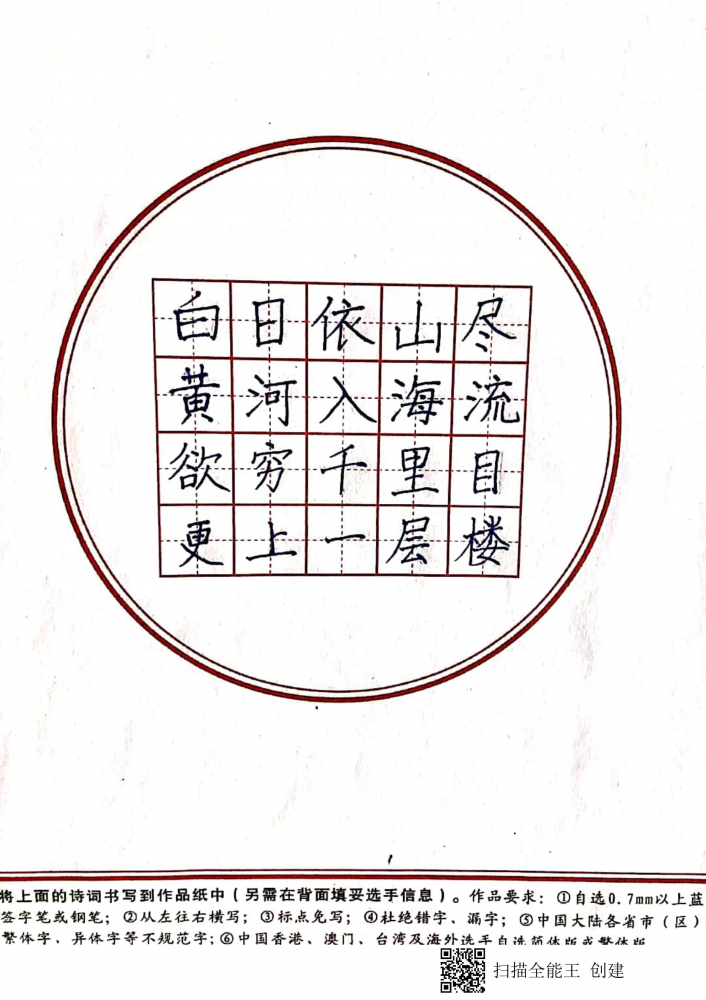 白日依山尽
黄河入海流
欲穷千里目
更上一层楼
将上面的诗词书写到作品纸中（另需在背面填妥选手信息）。作品要求：①自选0.7mm以上蓝
签字笔或钢笔；②从左往右横写；③标点免写；④杜绝错字、漏字；⑤中国大陆各省市（区）
繁体字、异体字等不规范字；⑥中国香港、澳门、台湾及海外选手自选简体版或繁体版
扫描全能王 创建